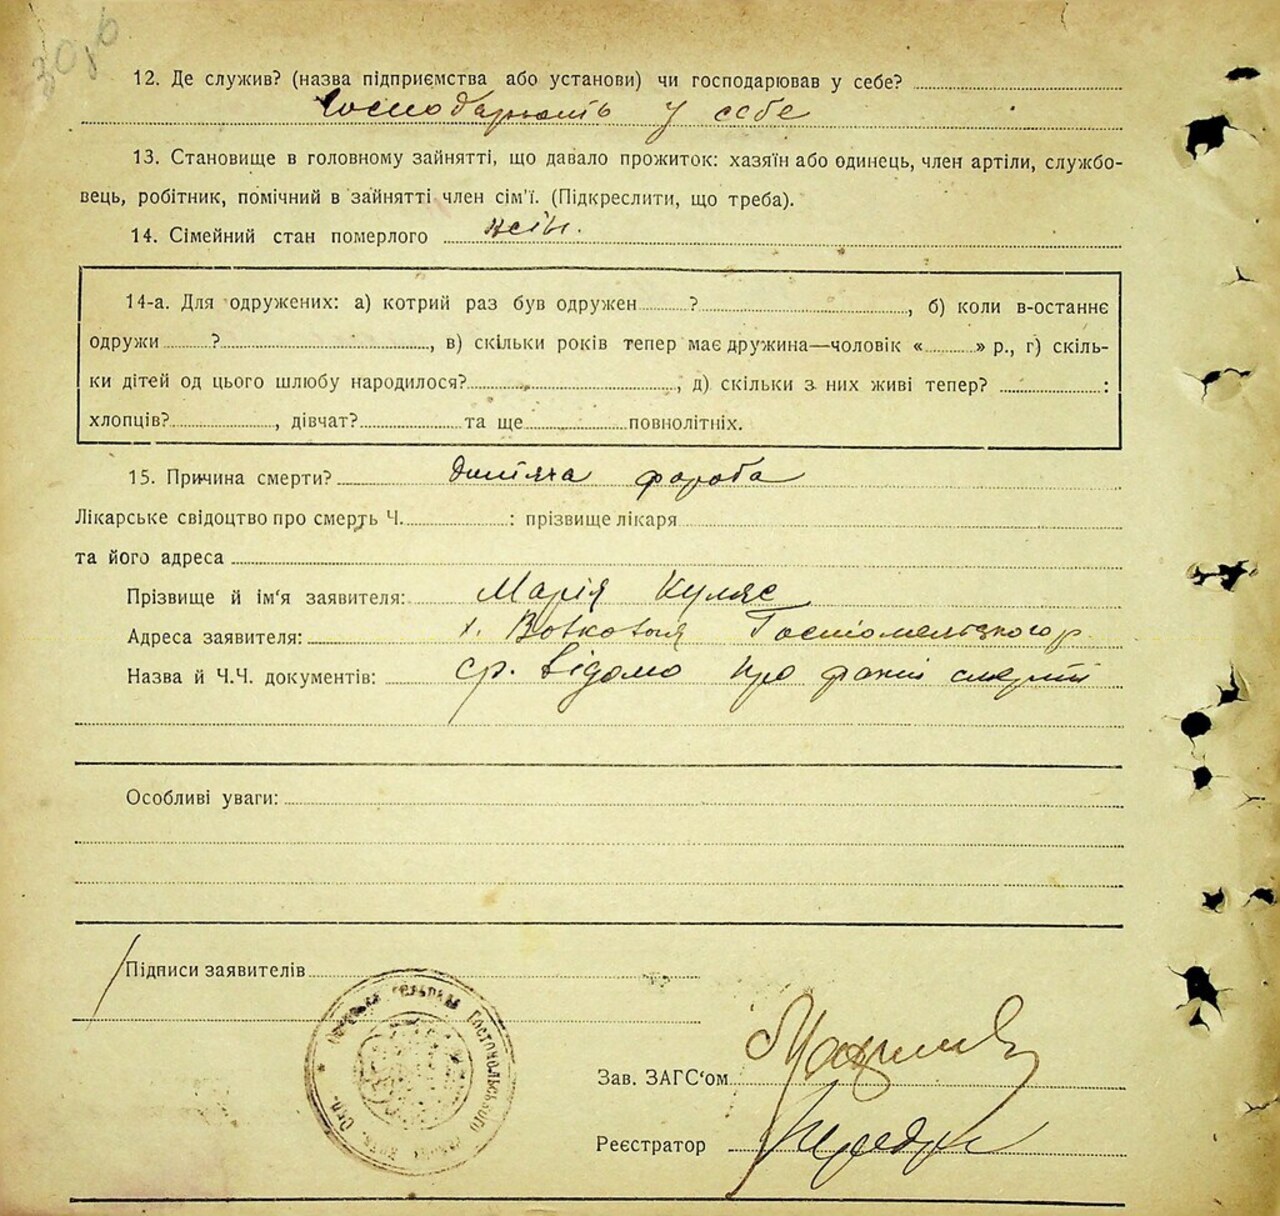 12. Де служив? (назва підприємства або установи) чи господарював у себе?
господарють у себе
13. Становище в головному зайнятті, що давало прожиток: хазяїн або одинець, член артілі, службо-
вець, робітник, помічний в зайнятті член сім'ї. (Підкреслити, що треба).
14. Сімейний стан померлого
14-а. Для одружених: а) котрий раз був одружен ? , б) коли в-останнє
одружи ? , в) скільки років тепер має дружина—чоловік « » р., г) скіль-
ки дітей од цього шлюбу народилося? , д) скільки з них живі тепер? :
хлопців? , дівчат? та ще повнолітніх.
15. Причина смерти? дитяча фороба
Лікарське свідоцтво про смерть Ч. : прізвище лікаря
та його адреса
Прізвище й ім'я заявителя: Марія Куляс
Адреса заявителя: х. Гостомельського р
Назва й Ч.Ч. документів: відомо про факт смерти
Особливі уваги:
Підписи заявителів
Гостомольського
Зав. ЗАГС'ом
Реєстратор